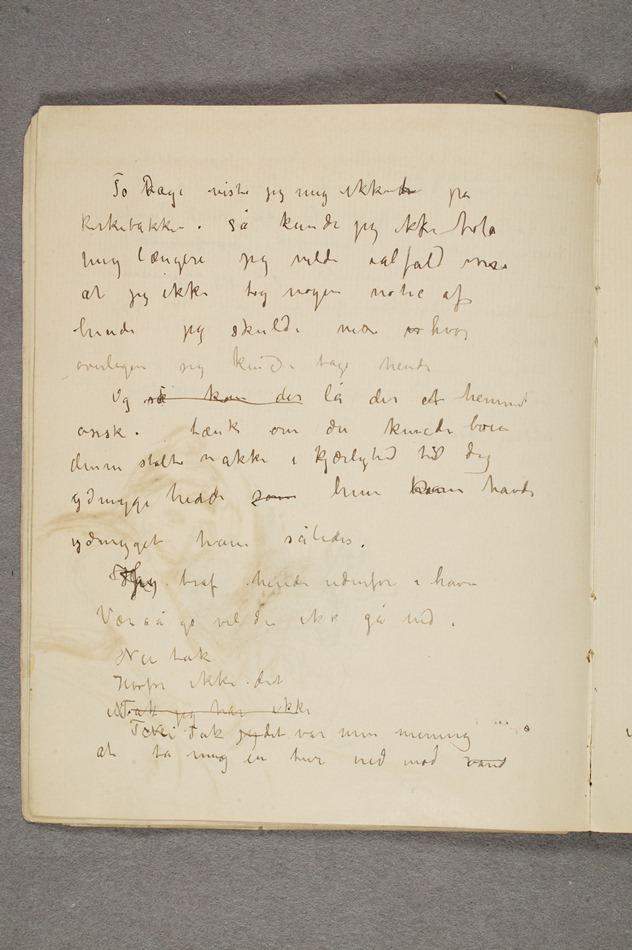 To Dage viste jeg mig ikke på
kirkebakken. Så kunde jeg ikke hole
mig længere jeg vilde ialfald vise
at jeg ikke tog nogen notic af
hende jeg skulde vise hvor
overlægen jeg kunde tage hende
Og så kom der lå der et hemmet
ønske. tænk om du kunde boie
denne stolte nakke i kjærlighed til dig
ydmyge hende som hun havde
ydmyget ham således.
Jeg traf hende udenfor i haven
Vær så go vil De ikke gå ind.
Nei tak
Hvorfor ikke det
Tak jeg har ikke
Nei Tak det var min mening
at ta mig en tur ned mod vand